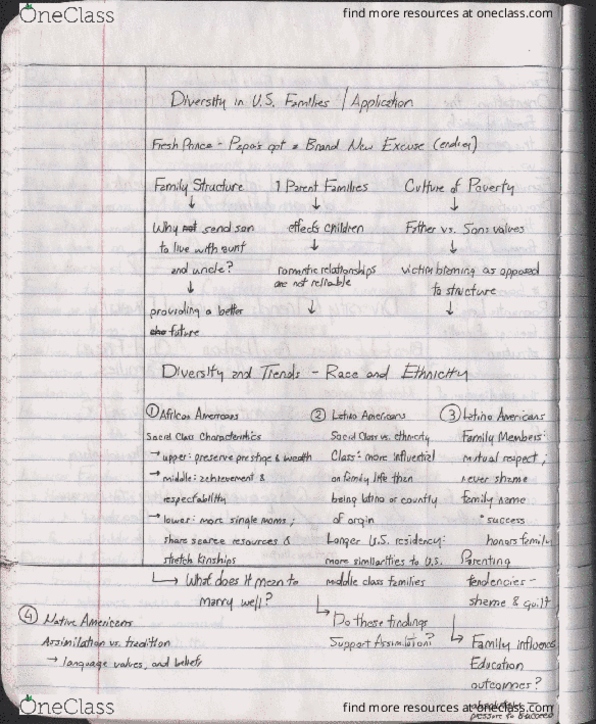 OneClass
find more resources at oneclass.com
Diversity in U.S. Families / Application
Fresh Prince - Papa's got a Brand New Excuse (ending)
Family Structure
↓
Why not send son
to live with aunt
and uncle?
↓
providing a better
future
1 Parent Families
↓
effects children
↓
romantic relationships
are not reliable
↓
Culture of Poverty
↓
Father vs. Sons values
↓
victim blaming as opposed
to structure
↓
Diversity and Trends - Race and Ethnicity
① African Americans
Social Class Characteristics
→ upper: preserve prestige & wealth
→ middle: achievement &
respectability
→ lower: more single moms;
share scarce resources &
stretch kinships
↳ What does it mean to
marry well?
② Latino Americans
Social Class vs. ethnicity
Class: more influential
on family life than
being latino or country
of orgin
Longer U.S. residency:
more similarities to U.S.
middle class families
↳ Do these findings
Support Assimilation?
③ Latino Americans
Family Members:
mutual respect;
never shame
family name
• success
honors family
Parenting
tendencies -
shame & guilt
↳ Family influence
Education
outcomes?
pressure to succeed
④ Native Americans
Assimilation vs. tradition
→ language values, and beliefs
OneClass
find more resources at oneclass.com